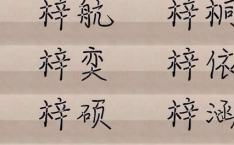 梓航 梓桐
梓奕 梓依
梓硕 梓涵